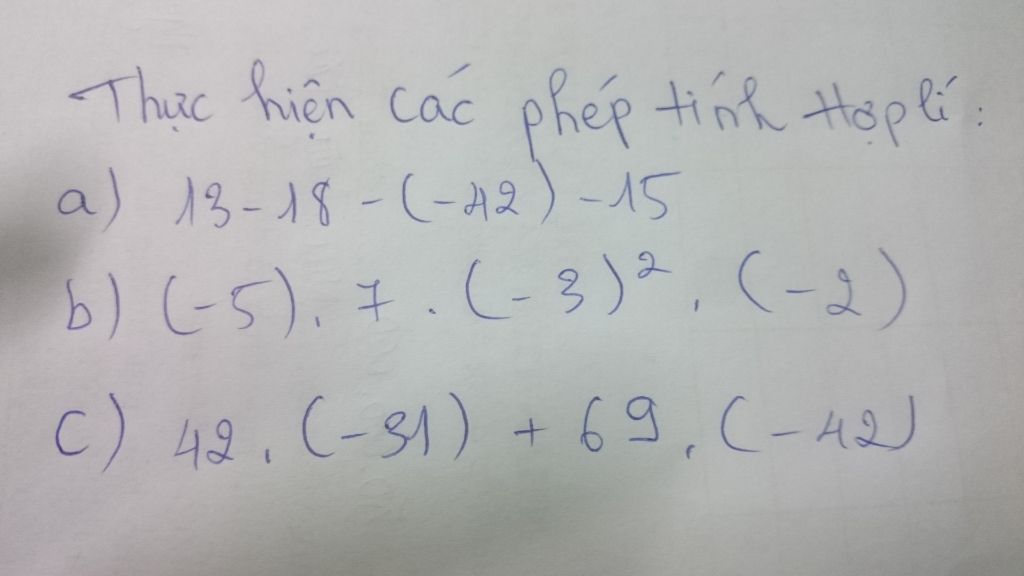 Thực hiện các phép tính Hợp lí:
a) 13 - 18 - (-42) - 15
b) (-5). 7 . (-3)². (-2)
c) 42. (-31) + 69. (-42)